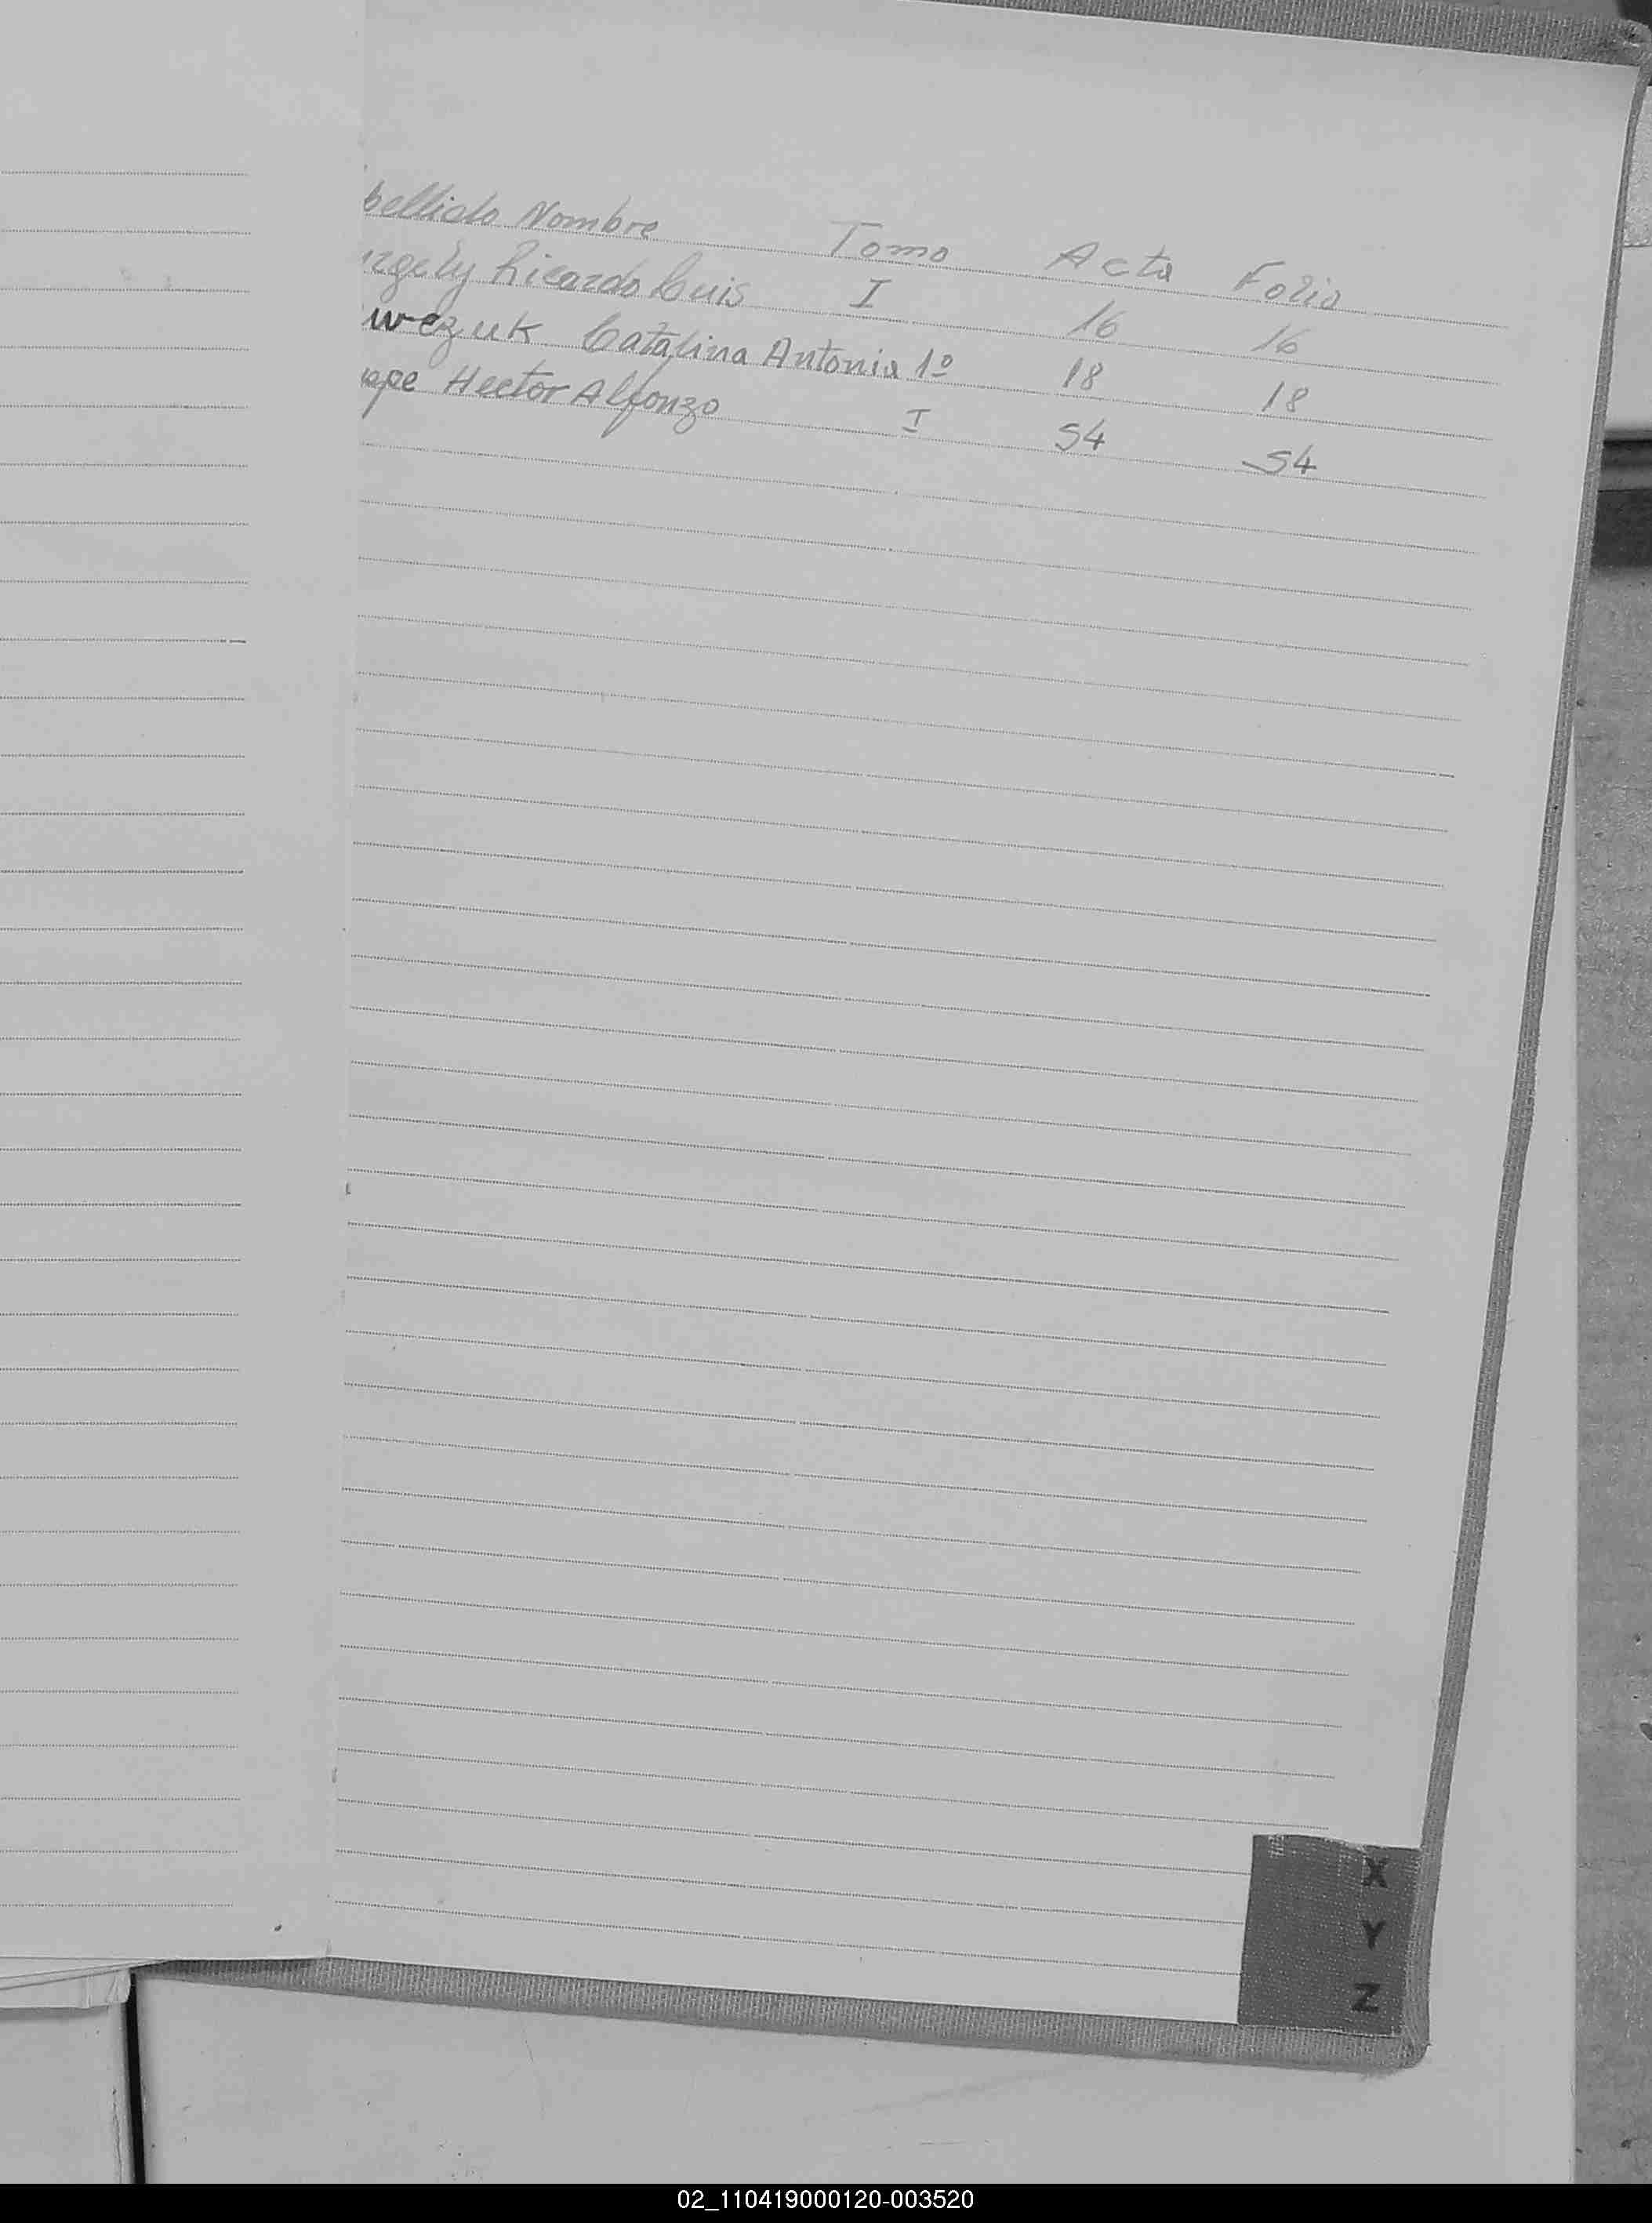 bellido Nombre Tomo Acta Folio
rgely Ricardo Luis I 16 16
wczuk Catalina Antonia 1º 18 18
ape Hector Alfonzo I 54 54
X
Y
Z
02_110419000120-003520